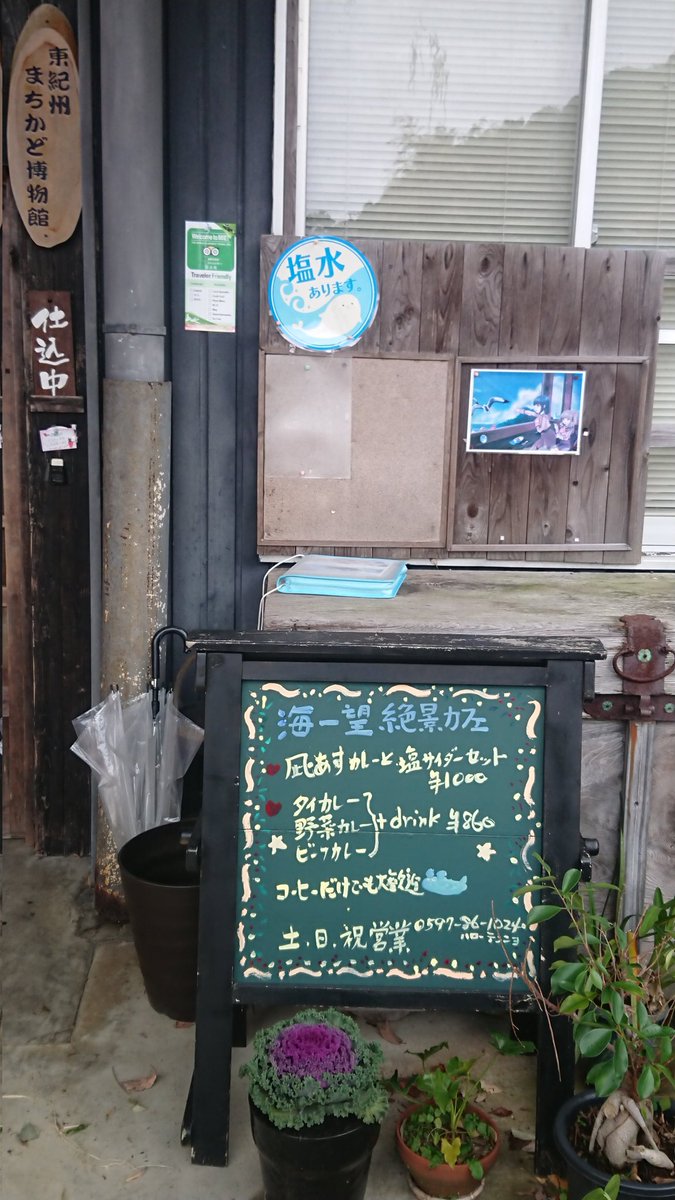 東紀州
まちかど博物館
仕込中
Traveler Friendly
塩水
あります。
海一望 絶景カフェ
凪あすカレーと塩サイダーセット
¥1000
タイカレー
野菜カレー +drink ¥860
ビーフカレー
コーヒーだけでも大歓迎
土.日.祝営業 0597-86-1024
ハローテンニョ